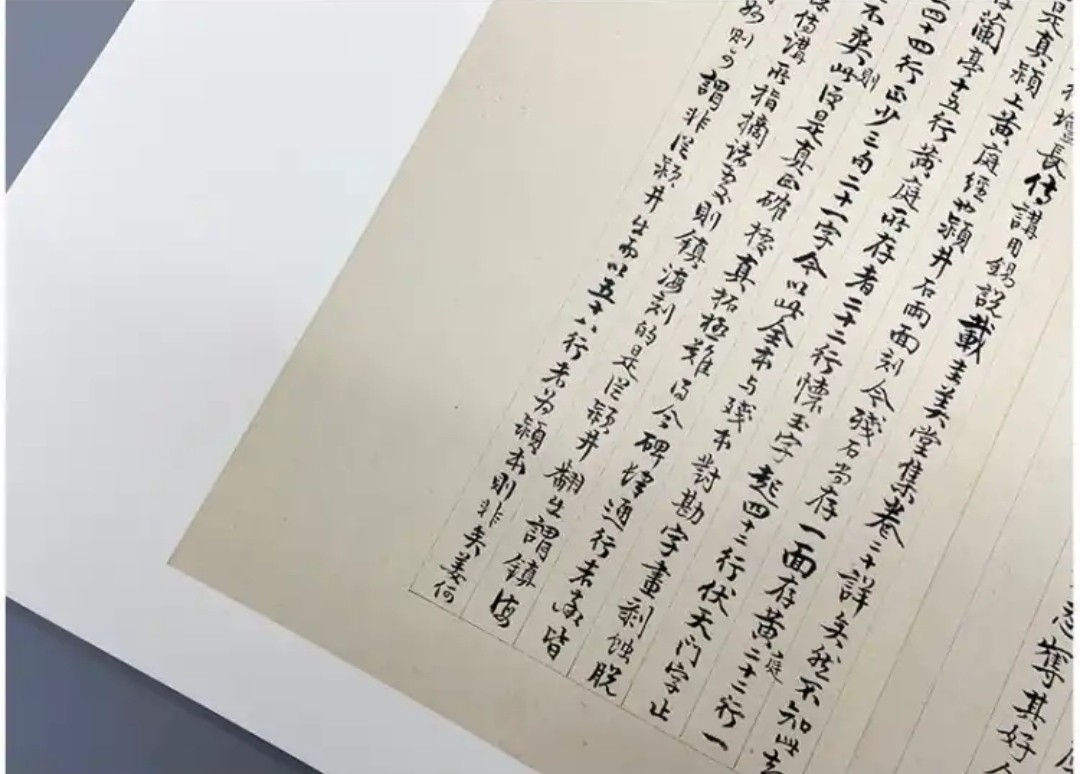 奪其好
長傳講用錫說載圭美堂集卷二十詳矣然不知此
是真潁上黃庭經也潁井石兩面刻今殘石尚存一面存黃庭二十二行一
蘭亭十五行黃庭所存者二十二行懷玉字起四十二行伏天門字止
四十四行正少三向二十一字今以此全本与殘本對勘字畫剥蝕脱
不爽則此便是真正確據真拓極難得今碑肆通行者皆
傳講所指摘諸處則鎮海刻的是從潁井翻生謂鎮海
則可謂非從潁井生而以五十八行者为潁本則非矣姜何